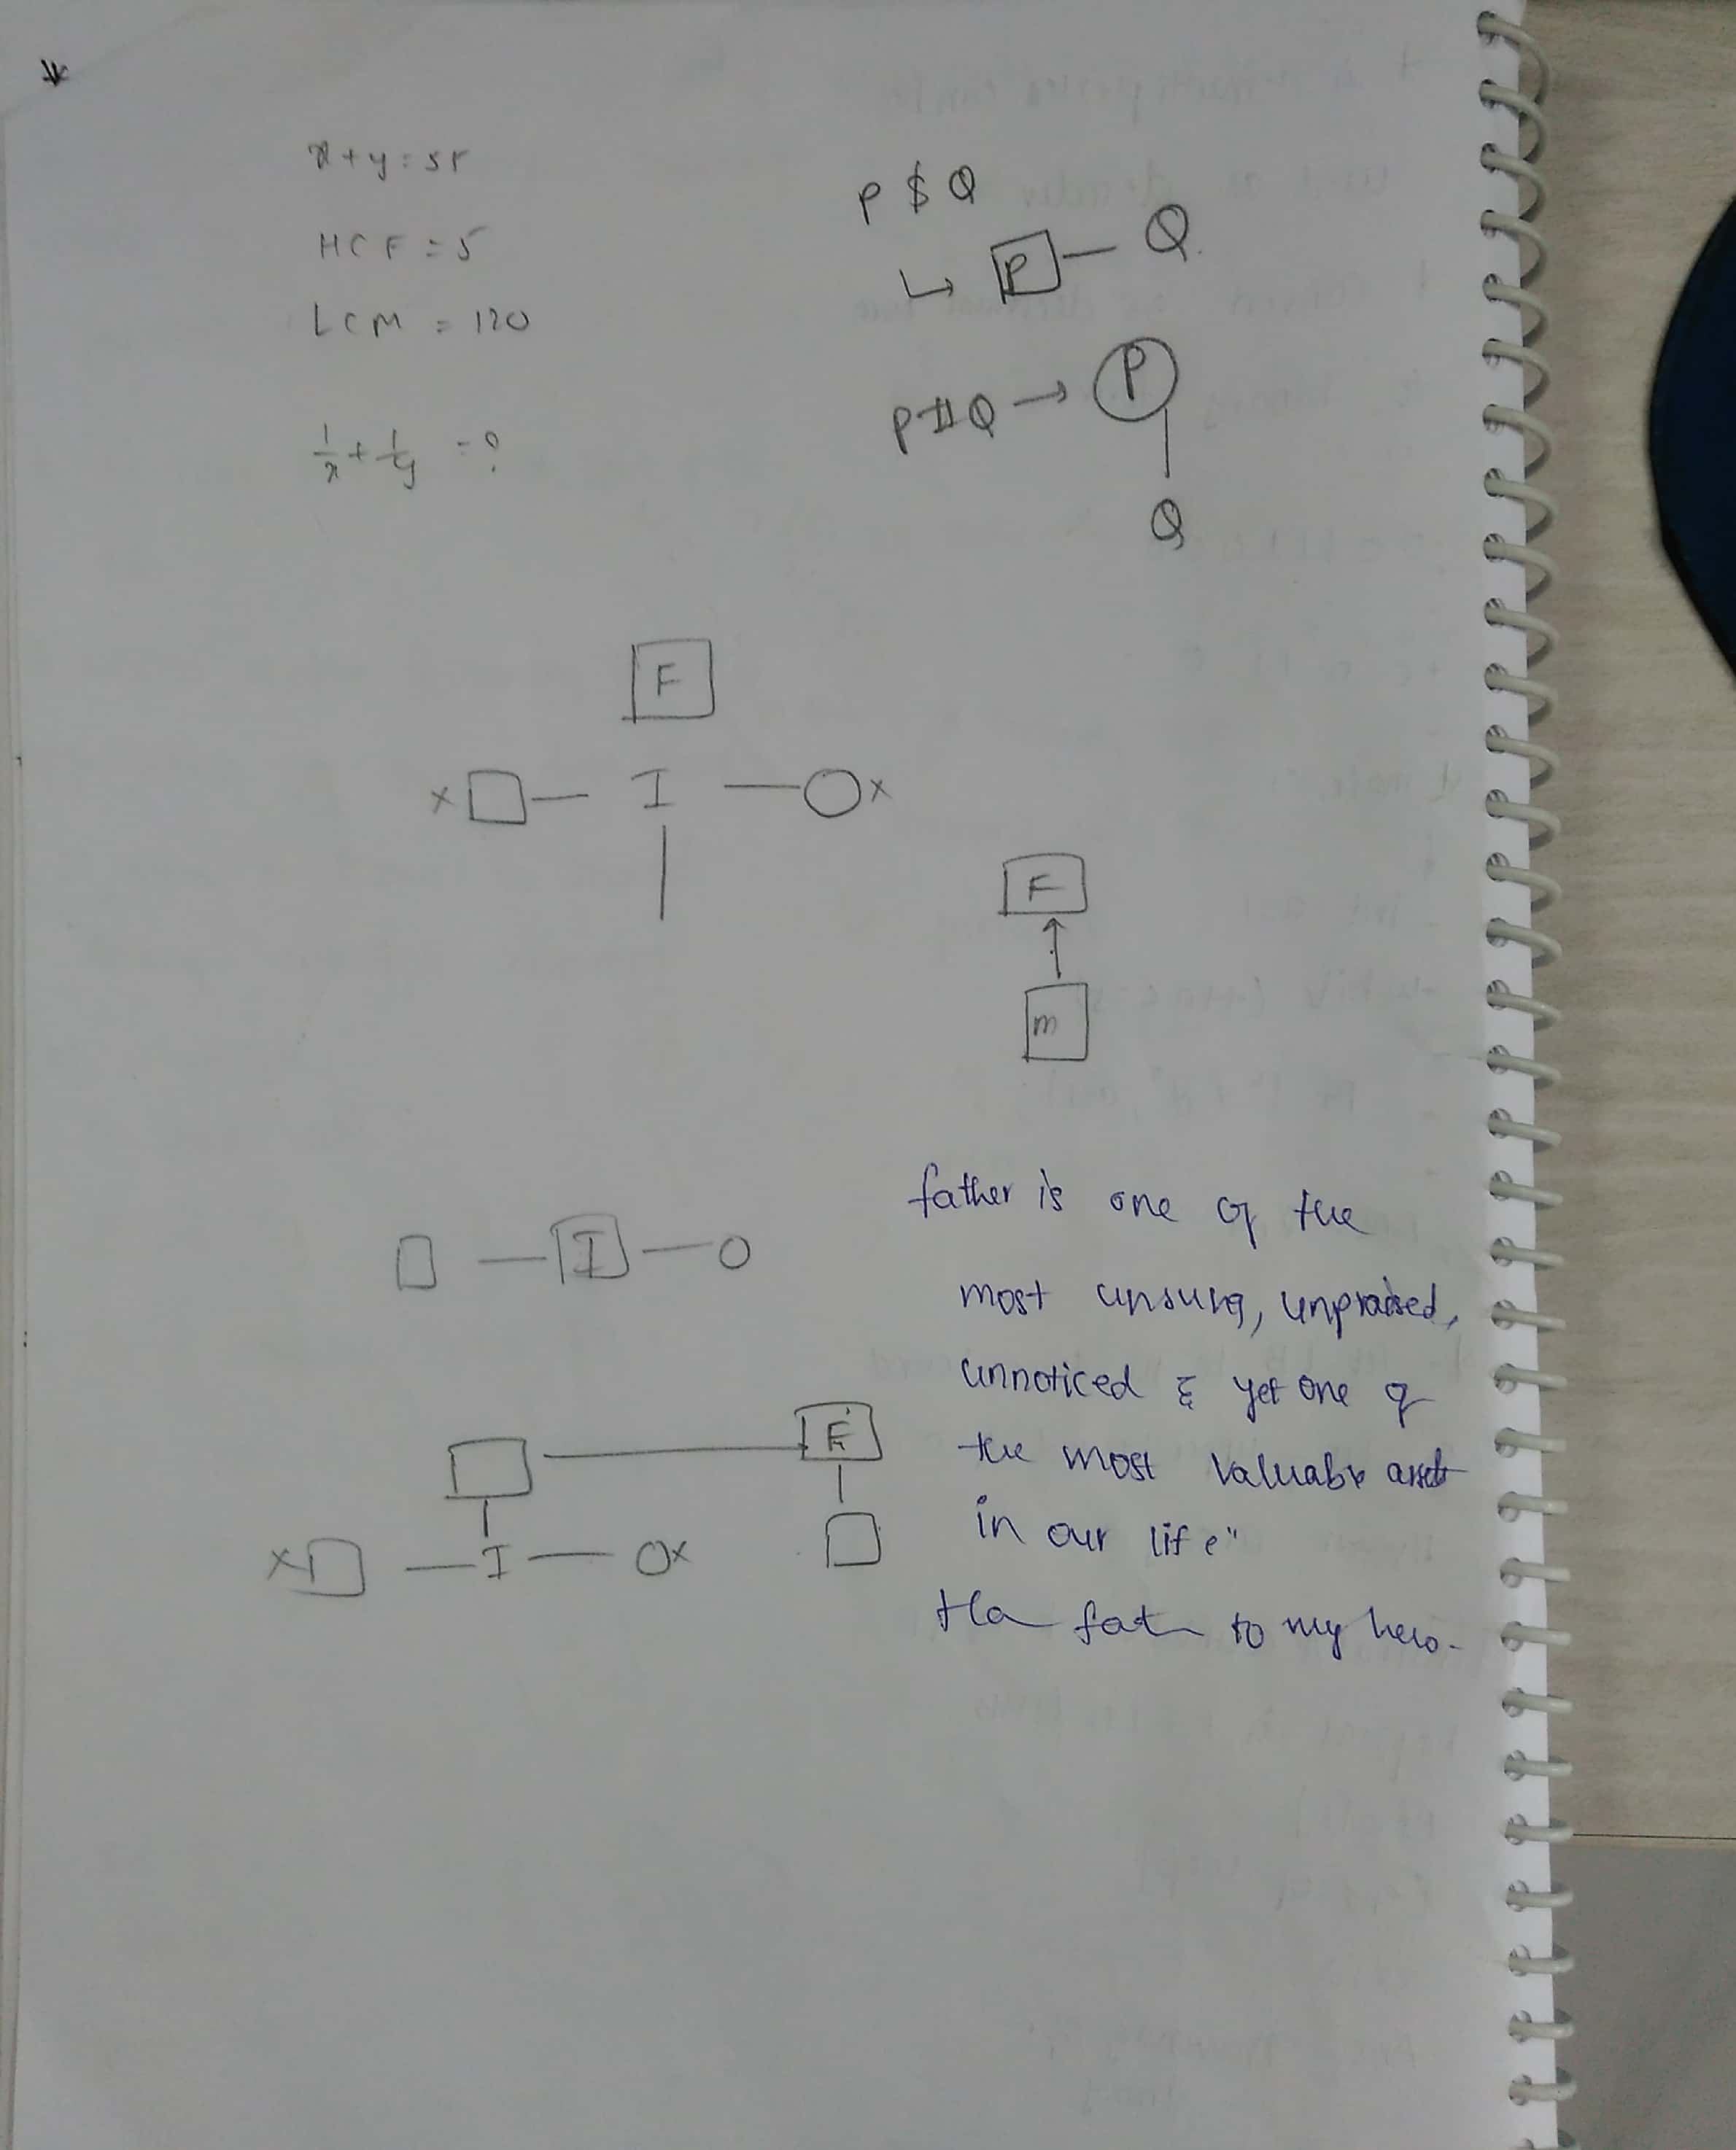 x+y=55
HCF=5
LCM = 120
1/x + 1/y = ?
P $ Q
↳ P — Q
P # Q → P
Q
F
x I x
F
m
I
F
x I x
father is one of the
most unsung, unpraised,
unnoticed & yet one of
the most valuable assets
in our life"
to my hero.